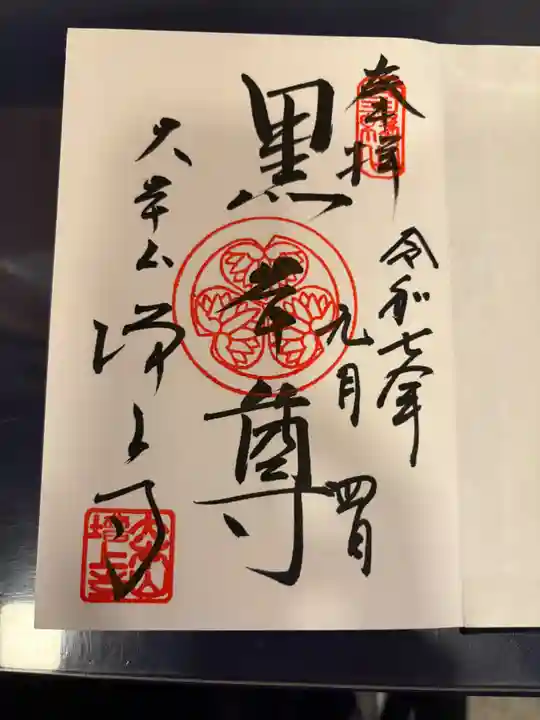 奉拝
令和七年
九月四日
黒本尊
大本山
増上寺
大本山
増上寺